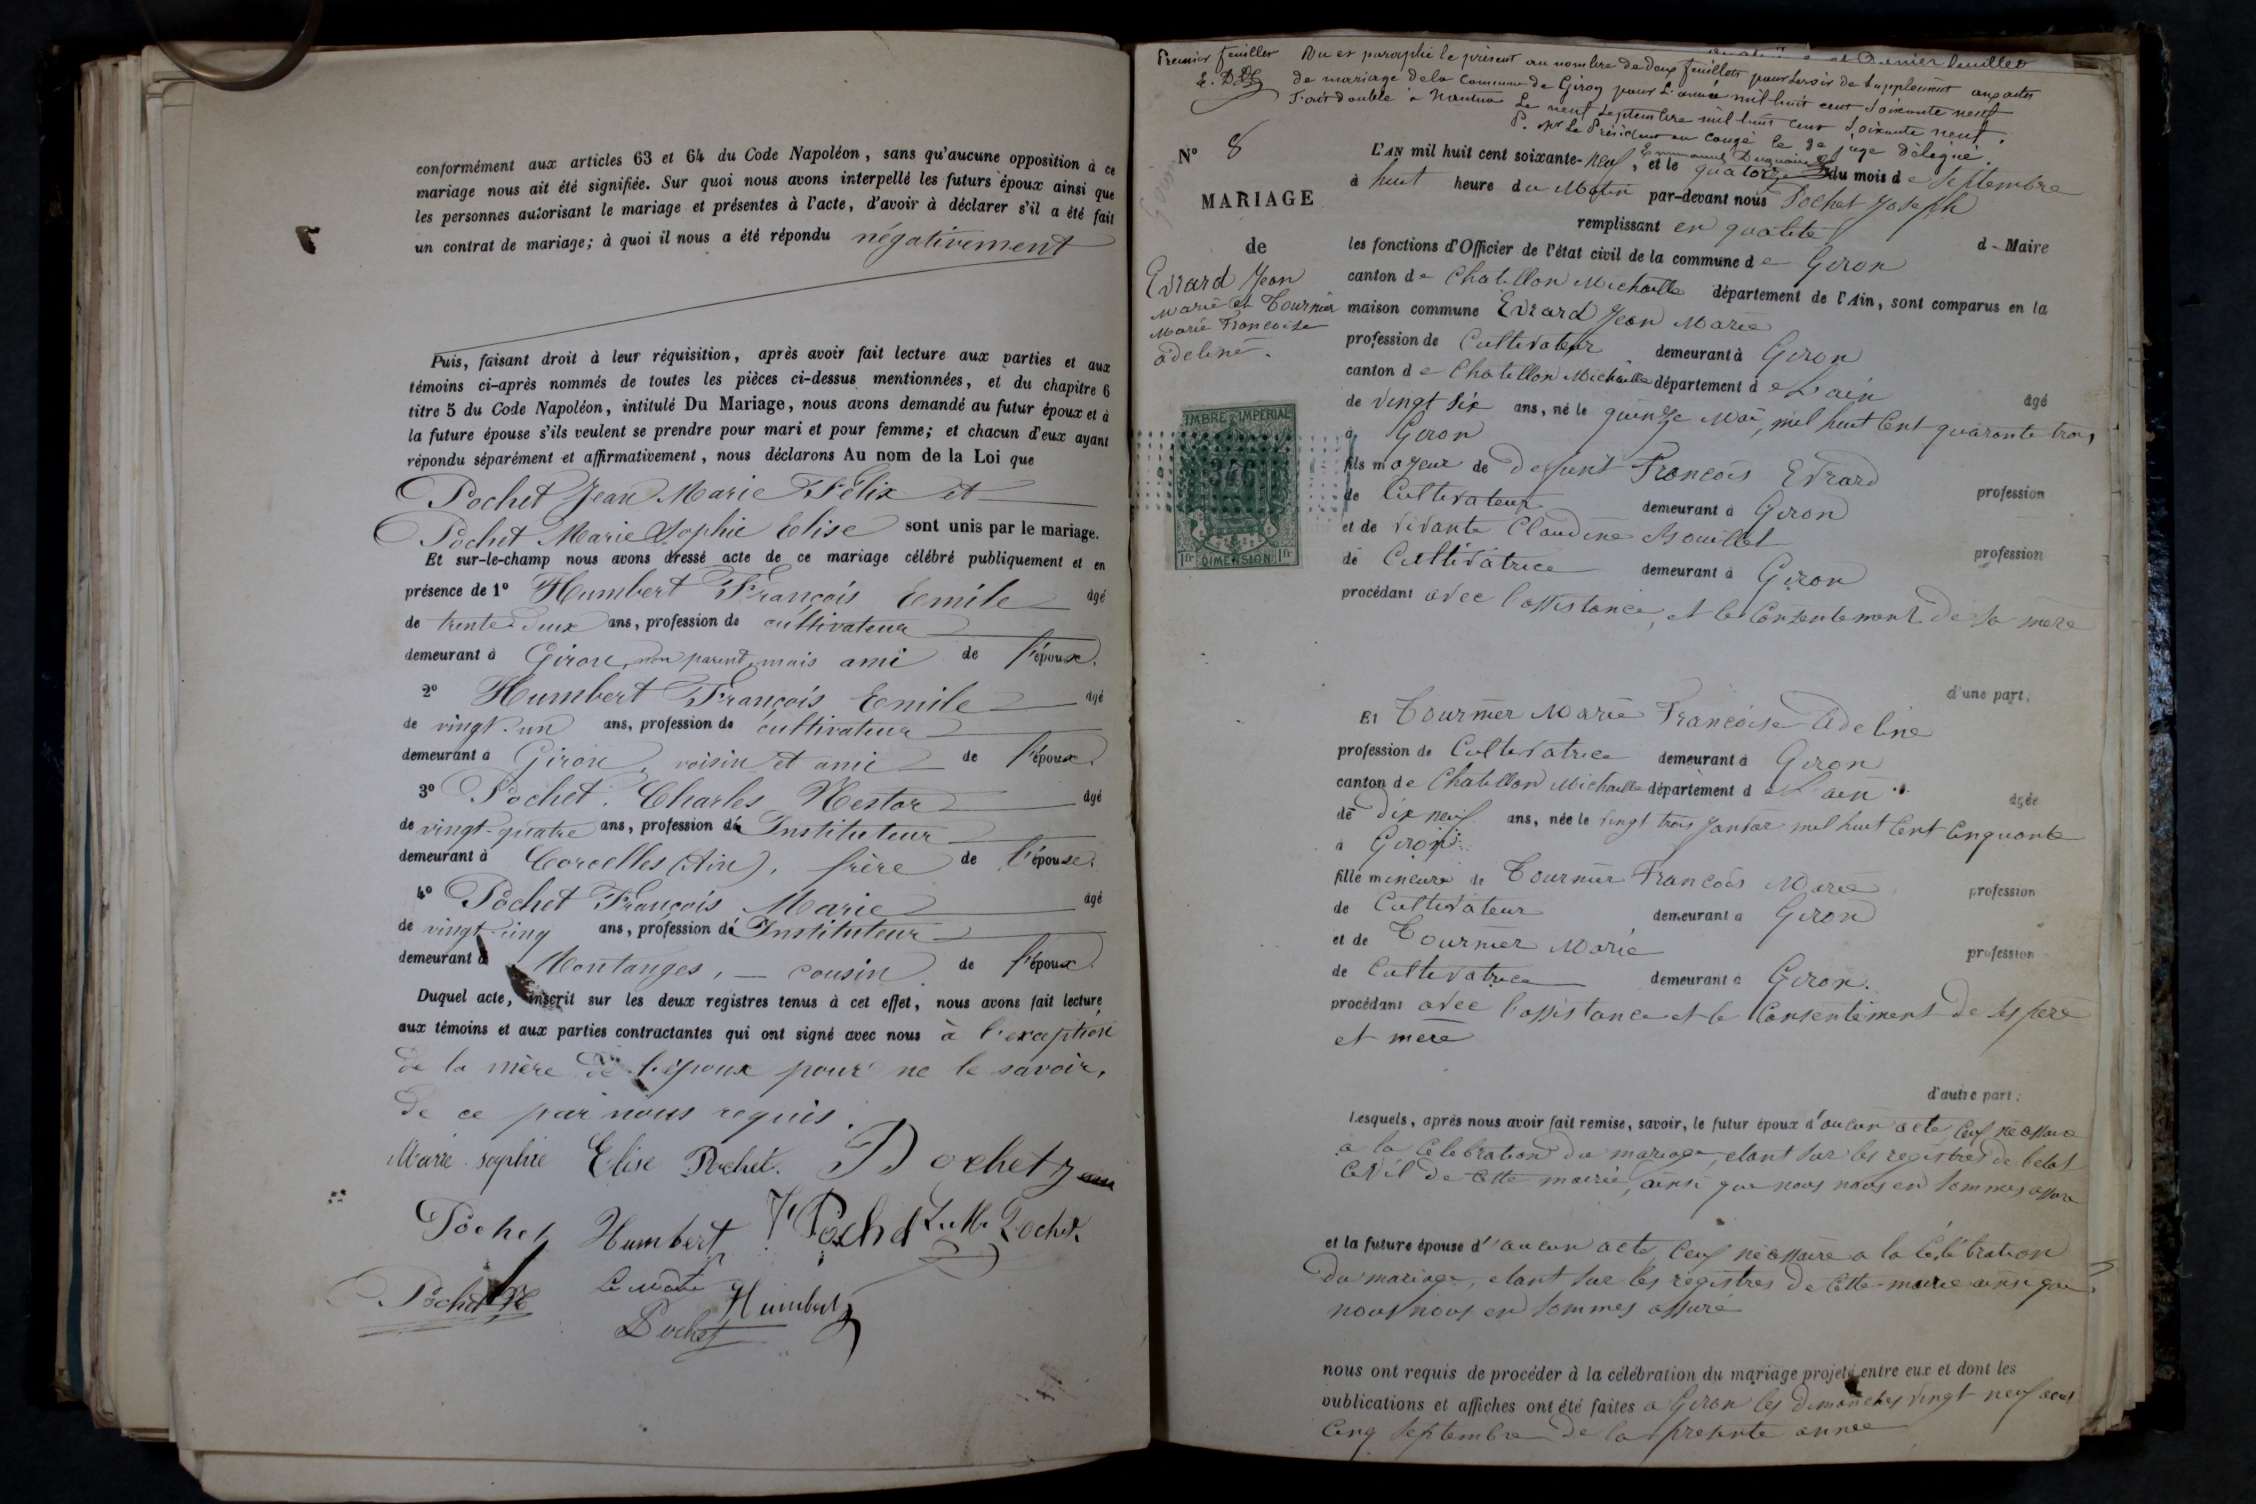 conformément aux articles 63 et 64 du Code Napoléon, sans qu'aucune opposition à ce
mariage nous ait été signifiée. Sur quoi nous avons interpellé les futurs époux ainsi que
les personnes autorisant le mariage et présentes à l'acte, d'avoir à déclarer s'il a été fait
un contrat de mariage; à quoi il nous a été répondu négativement
Puis, faisant droit à leur réquisition, après avoir fait lecture aux parties et aux
témoins ci-après nommés de toutes les pièces ci-dessus mentionnées, et du chapitre 6
titre 5 du Code Napoléon, intitulé Du Mariage, nous avons demandé au futur époux et à
la future épouse s'ils veulent se prendre pour mari et pour femme; et chacun d'eux ayant
répondu séparément et affirmativement, nous déclarons Au nom de la Loi que
Pochet Jean Marie Félix et
Pochet Marie Sophie Elise sont unis par le mariage.
Et sur-le-champ nous avons dressé acte de ce mariage célébré publiquement et en
présence de 1° Humbert François Emile âgé
de trente-deux ans, profession de cultivateur
demeurant à Giron, non parent, mais ami de l'époux.
2° Humbert François Emile âgé
de vingt-un ans, profession de cultivateur
demeurant à Giron, voisin et ami de l'époux.
3° Pochet Charles Nestor âgé
de vingt-quatre ans, profession de Instituteur
demeurant à Corcelles (Ain), frère de l'épouse.
4° Pochet François Marie âgé
de vingt-cinq ans, profession de Instituteur
demeurant à Montanges, cousin de l'époux.
Duquel acte, inscrit sur les deux registres tenus à cet effet, nous avons fait lecture
aux témoins et aux parties contractantes qui ont signé avec nous à l'exception
de la mère de l'époux pour ne le savoir,
de ce par nous requis.
Marie Sophie Elise Pochet. Pochet
Pochet Humbert Pochet Pochet
Pochet Le Maire Humbert
Pochet
Premier feuillet
Vu et paraphé le présent au nombre de deux feuillets pour servir de supplément aux actes
de mariage de la Commune de Giron pour l'année mil huit cent soixante neuf
Fait double à Nantua Le neuf septembre mil huit cent soixante neuf.
P. Le Président en congé le juge délégué.
N° 8
MARIAGE
de
Evrard Jean
Marie et Tournier
Marie Françoise
Adeline.
TIMBRE IMPERIAL
346
1fr DIMENSION 1fr
L'AN mil huit cent soixante-neuf, et le quatorze du mois de Septembre
à huit heure du Matin par-devant nous Pochet Joseph
remplissant en qualité d - Maire
les fonctions d'Officier de l'état civil de la commune de Giron
canton de Chatillon Michaille département de l'Ain, sont comparus en la
maison commune Evrard Jean Marie
profession de Cultivateur demeurant à Giron
canton de Chatillon Michaille département de L'ain âgé
de vingt six ans, né le quinze Mai, mil huit Cent quarante trois
à Giron
fils majeur de defunt François Evrard profession
de Cultivateur demeurant à Giron
et de vivante Claudine Bouillet profession
de Cultivatrice demeurant à Giron
procédant avec l'assistance, et le Consentement de sa mère
d'une part;
Et Tournier Marie Françoise Adeline
profession de Cultivatrice demeurant à Giron
canton de Chatillon Michaille département de L'ain âgée
de Dix neuf ans, née le vingt trois Janvier mil huit Cent Cinquante
à Giron
fille mineure de Tournier François Marie profession
de Cultivateur demeurant à Giron
et de Tournier Marie profession
de Cultivatrice demeurant à Giron.
procédant avec l'assistance et le Consentement de ses père
et mere
d'autre part;
Lesquels, après nous avoir fait remise, savoir, le futur époux d'aucun acte,
a la Celebration du mariage, etant sur les registres de l'etat
Civil de Cette mairie, ainsi que nous nous en sommes assure
et la future épouse d'aucun acte, a la Célébration
du mariage, etant sur les registres de Cette mairie ainsi que
nous nous en sommes assuré
nous ont requis de procéder à la célébration du mariage projeté entre eux et dont les
publications et affiches ont été faites a Giron les dimanches vingt neuf aout
Cinq Septembre de la presente année